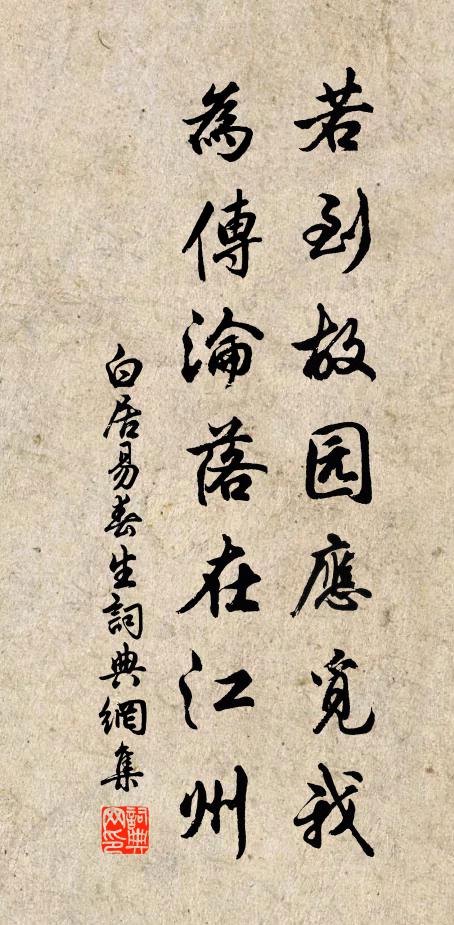 若到故园應覓我
為傳淪落在江州
白居易春生詞典網集
詞典網印